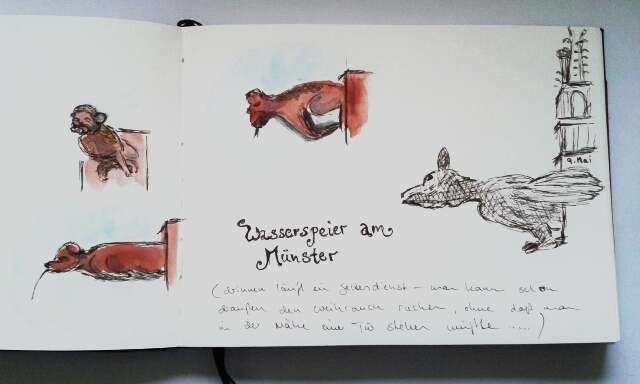 9. Mai
Wasserspeier am
Münster
(drinnen läuft ein Gottesdienst – man kann schon
draußen den Weihrauch riechen, ohne daß man
in der Nähe einer Tür stehen müßte ....)